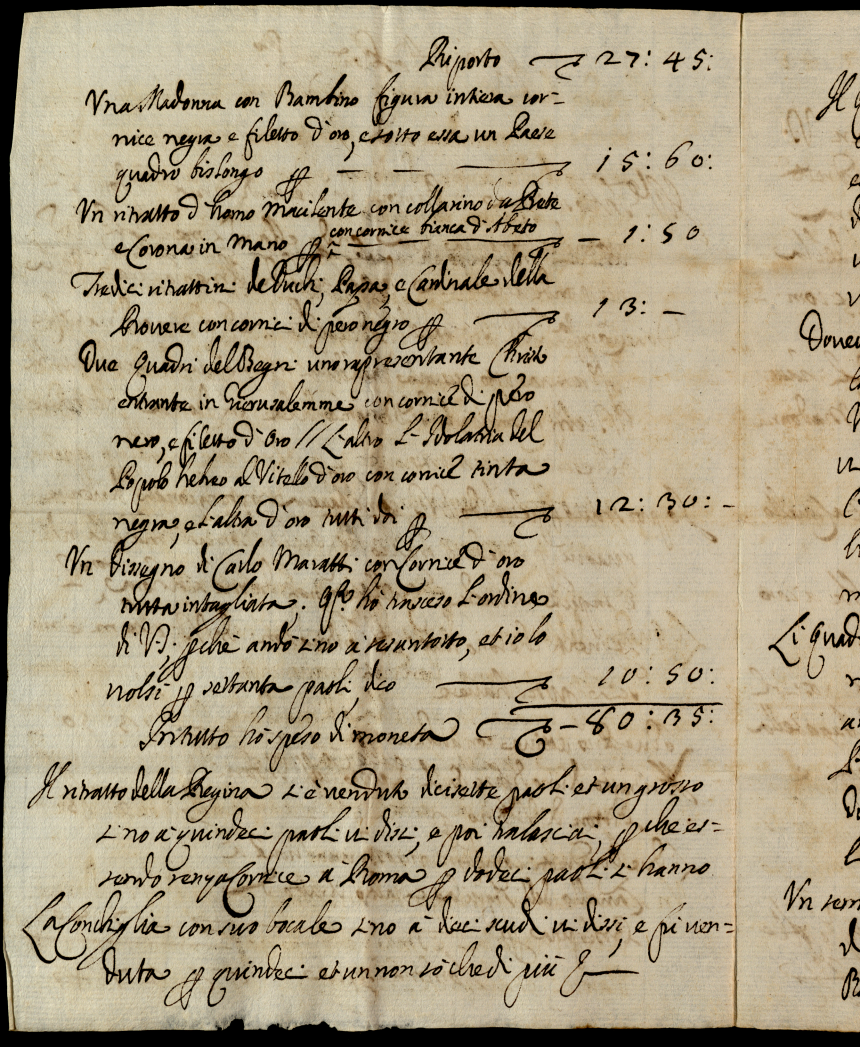 Riporto 27: 45:
Una Madonna con Bambino figura intiera cor=
nice negra e filetto d'oro, e sotto essa un Paese
quadro bislongo 15: 60:
Un ritratto d'homo macilente con collarino da Prete
e Corona in mano con cornice bianca d'Abeto – 1: 50
Tredici ritrattini de Duchi, Papa, e Cardinale della
Rovere con cornici di pero negro 13: –
Due quadri del uno rapresentante Christo
entrante in Gierusalemme con cornice di pero
nero, e filetto d'oro // L'altro l'Idolatria del
Popolo hebreo al Vitello d'oro con cornice tinta
negra, e l'altra d'oro tutti doi 12: 30: –
Un dissegno di Carlo Maratti con Cornice d'oro
tutta intagliata, ho trasceso l'ordine
di V.S. pche andò sino a sesantotto, et io lo
volsi p settanta paoli, dico 10: 50:
In tutto hò speso di moneta – 80: 35:
Il ritratto della Regina s'è venduto dicisette paoli et un grosso
sino a quindeci paoli vi dissi, e poi tralasciai, p che es=
sendo senza Cornice à Roma p dodeci paoli si hanno
La Conchiglia con suo bocale sino à dieci scudi vi dissi, e fù ven=
duta p quindeci et un non sò che di più
Il
Dove
Li quad
Un sem